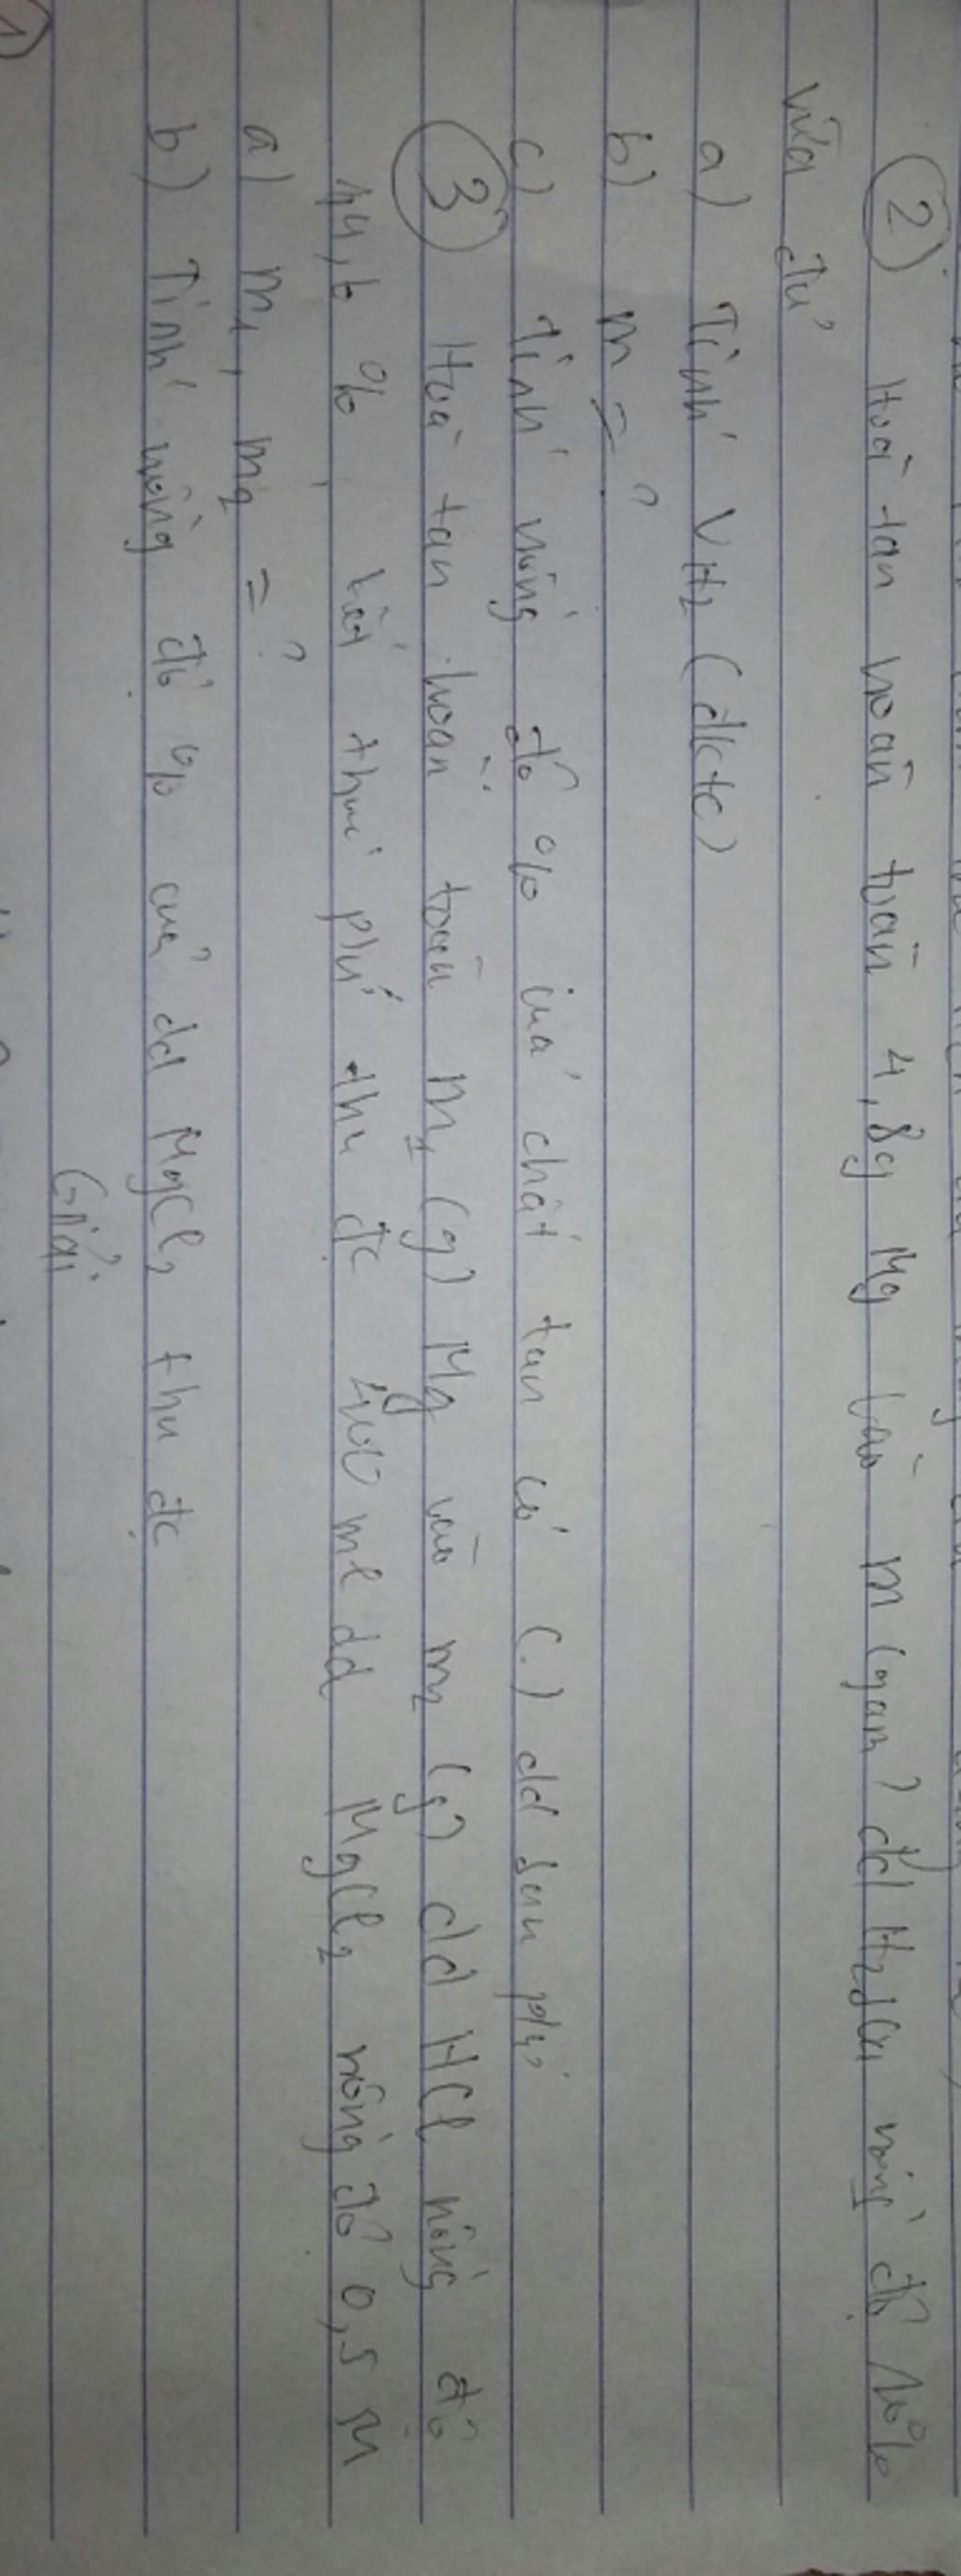 ② Hoà tan hoàn toàn 4,8g Mg vào m (gam) dd H2SO4 nồng độ 10%
vừa đủ
a) Tính VH2 (đktc)
b) m = ?
c) Tính nồng độ % của chất tan có (.) dd sau pứ
③ Hoà tan hoàn toàn m1 (g) Mg vào m2 (g) dd HCl nồng độ
14,6 % , kết thúc phứ thu đc 400 ml dd MgCl2 nồng độ 0,5 M
a) m1, m2 = ?
b) Tính nồng độ % của dd MgCl2 thu đc
Giải
1